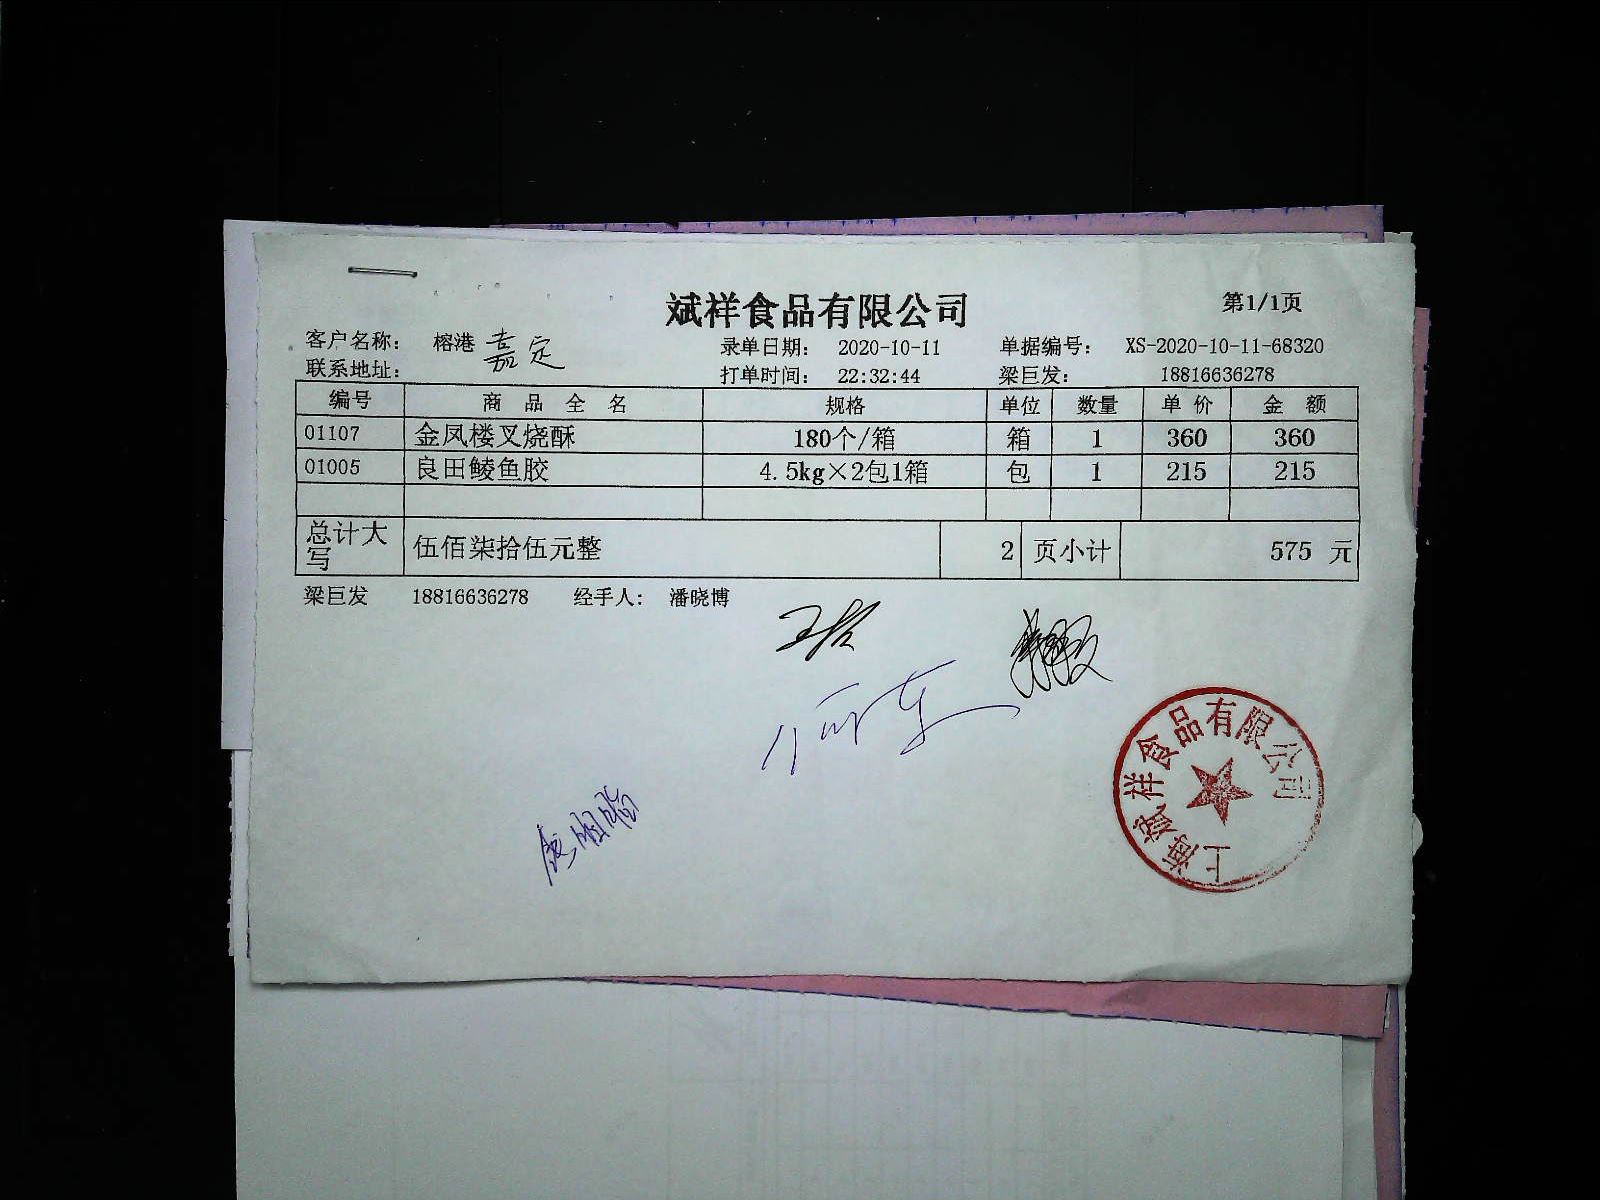 斌祥食品有限公司
第1/1页
客户名称: 榕港 嘉定 录单日期: 2020-10-11 单据编号: XS-2020-10-11-68320
联系地址: 打单时间: 22:32:44 梁巨发: 18816636278
编号 商品全名 规格 单位 数量 单价 金额
01107 金凤楼叉烧酥 180个/箱 箱 1 360 360
01005 良田鲮鱼胶 4.5kg×2包1箱 包 1 215 215
总计大写 伍佰柒拾伍元整 2 页小计 575 元
梁巨发 18816636278 经手人: 潘晓博
上海斌祥食品有限公司